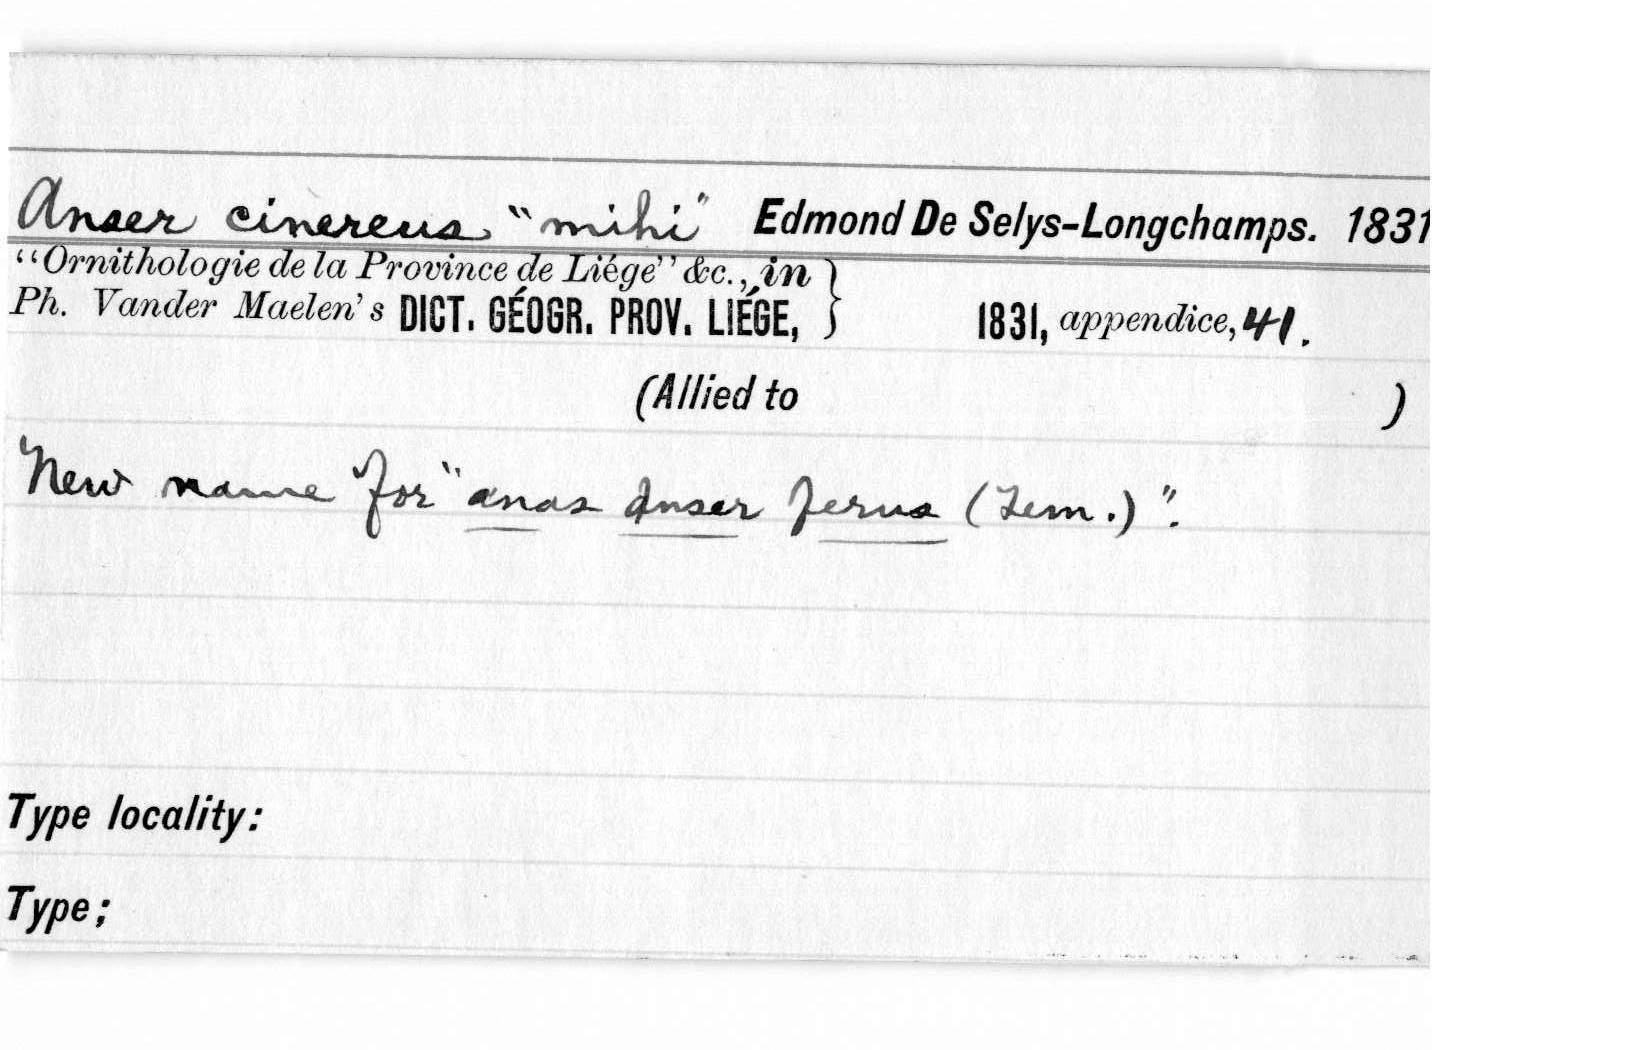 Anser cinereus "mihi" Edmond De Selys-Longchamps. 1831
"Ornithologie de la Province de Liége" &c., in }
Ph. Vander Maelen's DICT. GÉOGR. PROV. LIÉGE, 1831, appendice, 41.
(Allied to )
New name for "anas Anser ferus (Tem.)".
Type locality:
Type;